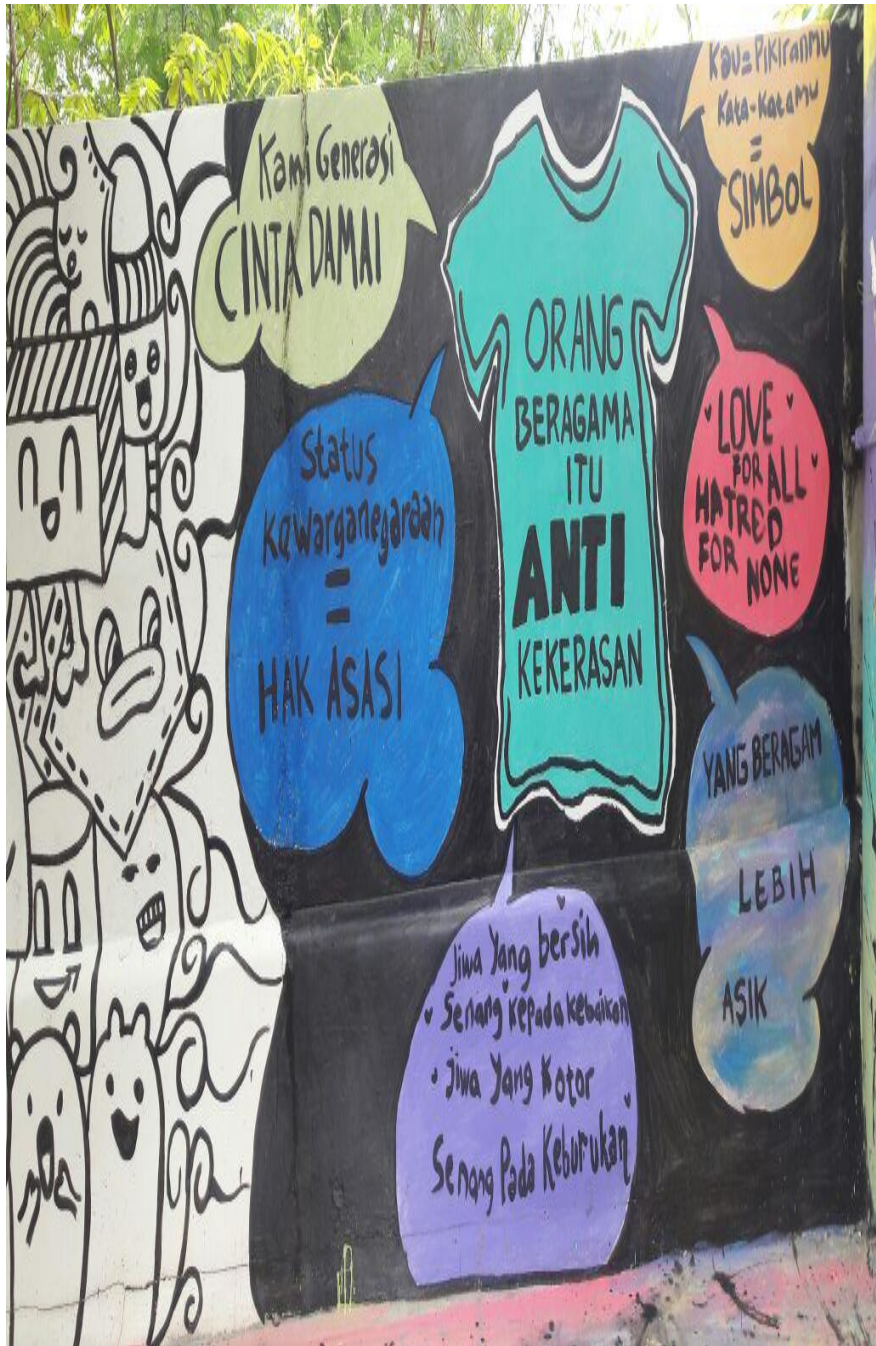 Kami Generasi
CINTA DAMAI
Status
Kewarganegaraan
=
HAK ASASI
ORANG
BERAGAMA
ITU
ANTI
KEKERASAN
Kau=Pikiranmu
Kata-Katamu
=
SIMBOL
LOVE
FOR ALL
HATRED
FOR NONE
YANG BERAGAM
LEBIH
ASIK
Jiwa Yang bersih
Senang kepada kebaikan
Jiwa Yang Kotor
Senang Pada Keburukan